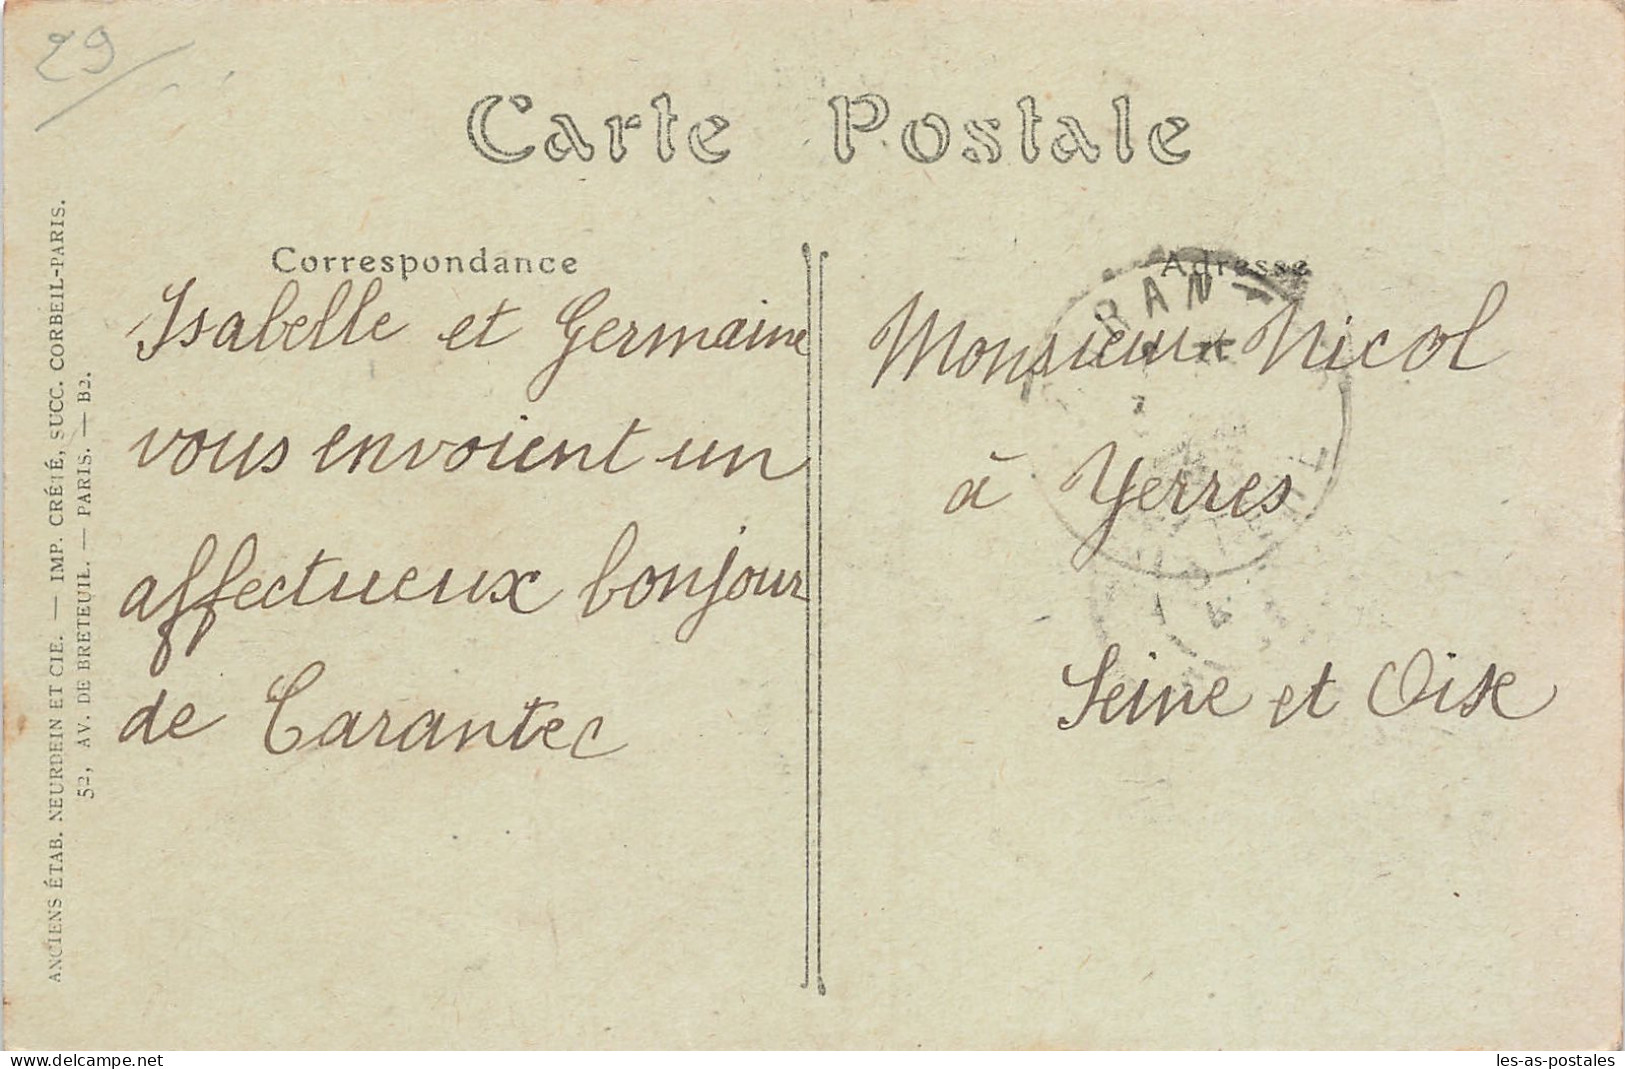 29
Carte Postale
Correspondance
Adresse
Isabelle et Germaine
vous envoient un
affectueux bonjour
de Carantec
Monsieur Nicol
à Yerres
Seine et Oise
ANCIENS ÉTAB. NEURDEIN ET CIE. — IMP. CRÉTÉ, SUCC. CORBEIL-PARIS.
52, AV. DE BRETEUIL. — PARIS. — B2.
delcampe.net
les-as-postales